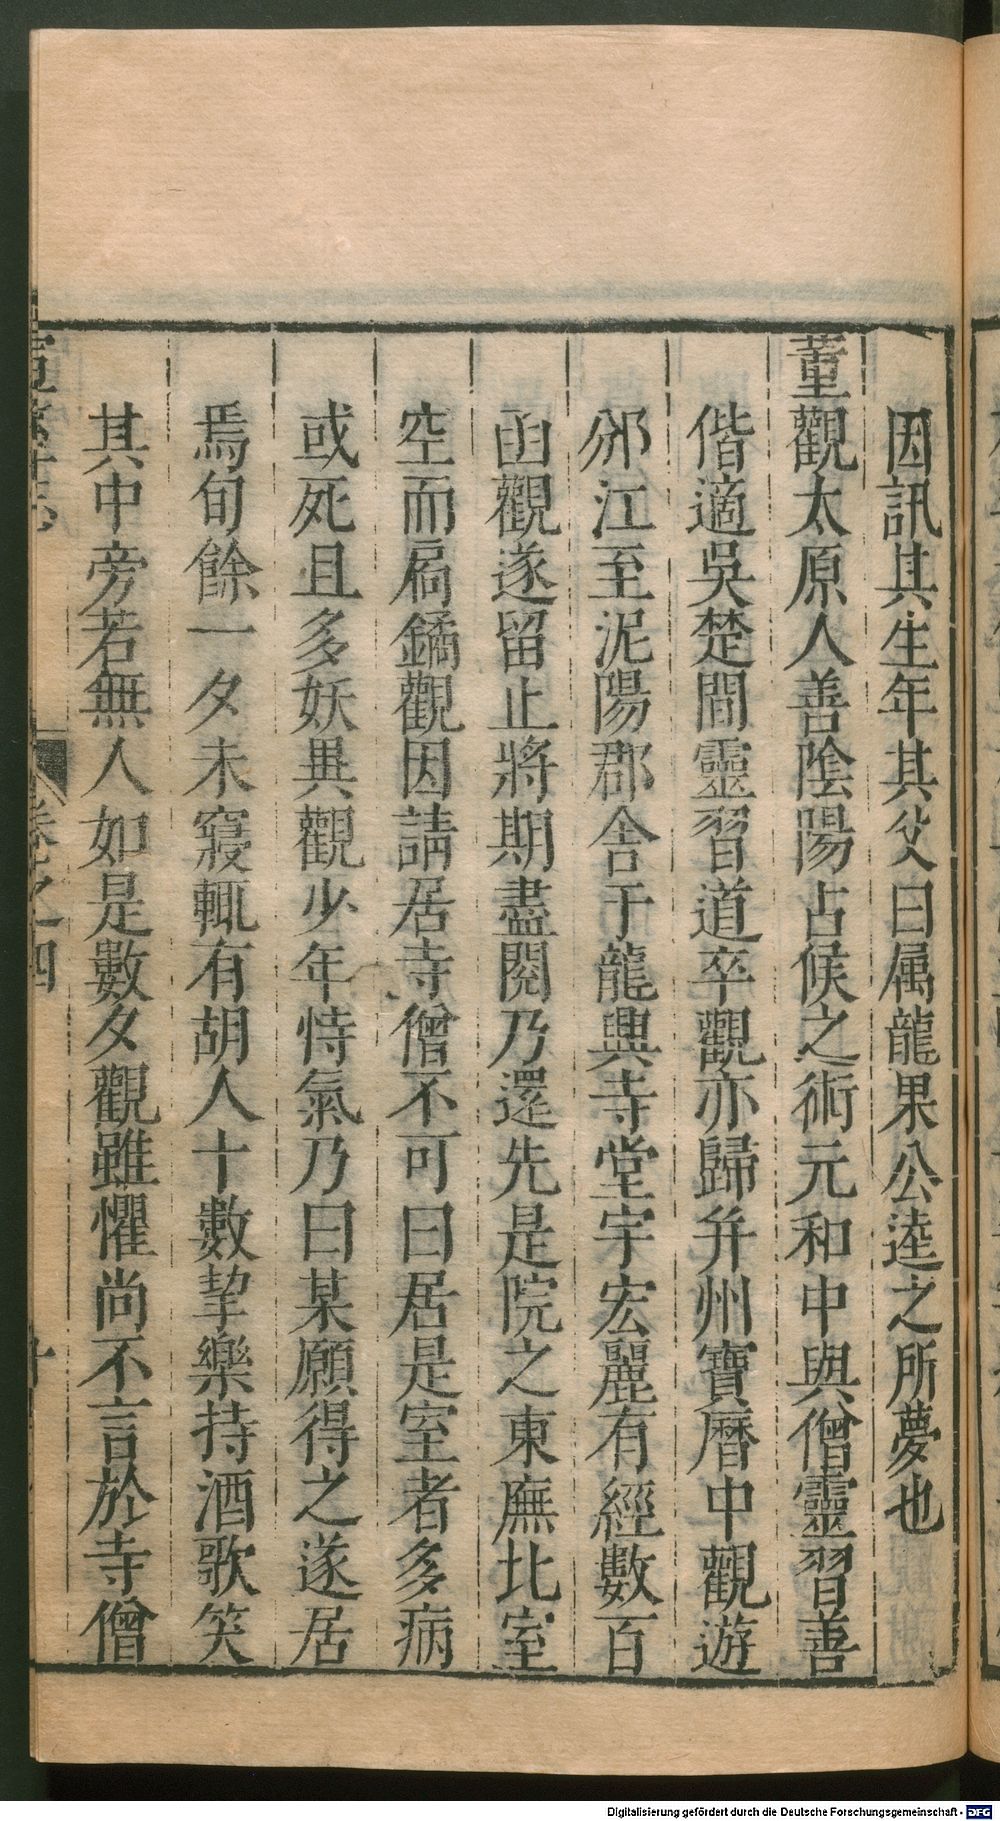 因訊其生年其父曰属龍果公逵之所夢也
董觀太原人善陰陽占候之術元和中與僧靈習善
偕適吳楚間靈習道卒觀亦歸并州寶曆中觀遊
邠江至泥陽郡舍于龍興寺堂宇宏麗有經數百
函觀遂留止將期盡閱乃還先是院之東廡北室
空而扃鐍觀因請居寺僧不可曰居是室者多病
或死且多妖異觀少年恃氣乃曰某願得之遂居
焉旬餘一夕未寢輒有胡人十數挈樂持酒歌笑
其中旁若無人如是數夕觀雖懼尚不言於寺僧
卷之四
Digitalisierung gefördert durch die Deutsche Forschungsgemeinschaft - DFG